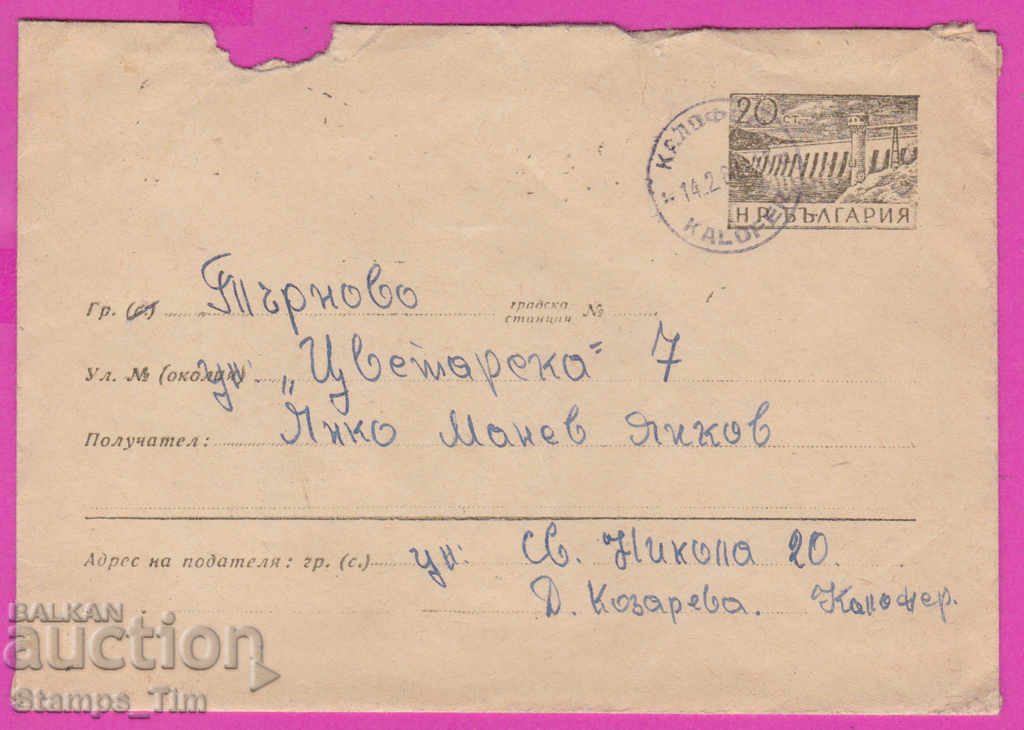 20 СТ.
КАЛОФ
14.2
KALOFER
Н Р БЪЛГАРИЯ
Гр. (с.) Търново градска станция №
Ул. № (околия) ул. „Цветарска" 7
Получател: Янко Манев Янков
Адрес на подателя: гр. (с.) ул. Св. Никола 20.
Д. Козарева. Калофер.
BALKAN
auction
Stamps_Tim